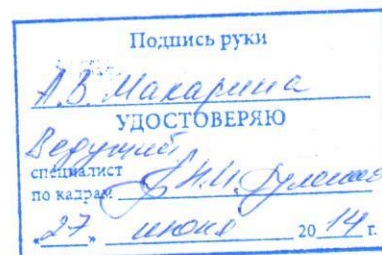 Подпись руки
А.В. Макарина
УДОСТОВЕРЯЮ
Ведущий
специалист
по кадрам Н.И.
«27» июня 2014 г.